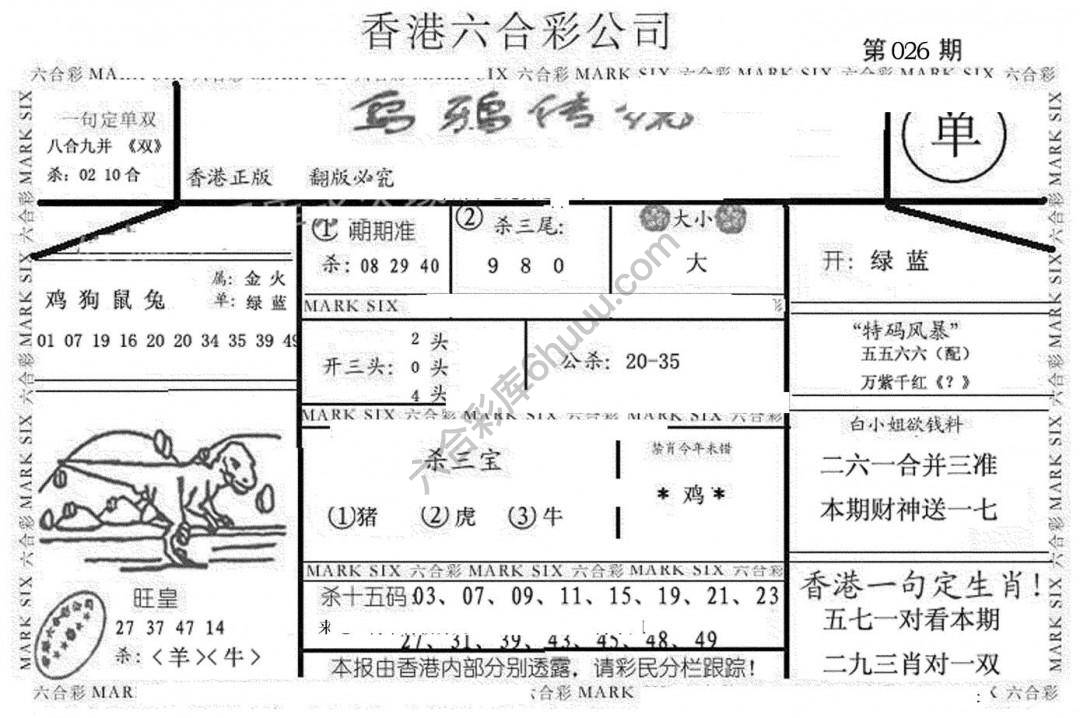 香港六合彩公司
第 026 期
六合彩 MA
IX 六合彩 MARK SIX 六合彩 MARK SIX 六合彩 MARK SIX 六合彩
一句定单双
八合九并 《双》
杀: 02 10 合
乌鸦传
香港正版 翻版必究
单
鸡 狗 鼠 兔
属: 金 火
单: 绿 蓝
01 07 19 16 20 20 34 35 39 49
① 期期准
杀: 08 29 40
② 杀三尾:
9 8 0
大小
大
开: 绿 蓝
MARK SIX
开三头:
2 头
0 头
4 头
公杀: 20-35
“特码风暴”
五五六六（配）
万紫千红《?》
MARK SIX 六合彩 MARK SIX 六合彩 MARK SIX 六合彩
杀三宝
①猪 ②虎 ③牛
禁肖今年未错
* 鸡 *
白小姐欲钱料
二六一合并三准
本期财神送一七
旺皇
27 37 47 14
杀: <羊><牛>
MARK SIX 六合彩 MARK SIX 六合彩 MARK SIX 六合彩
杀十五码:03、07、09、11、15、19、21、23
来
27、31、39、43、45、48、49
本报由香港内部分别透露，请彩民分栏跟踪!
香港一句定生肖!
五七一对看本期
二九三肖对一双
六合彩 MAR
合彩 MARK
六合彩
六合彩 MARK SIX 六合彩 MARK SIX 六合彩 MARK SIX 六合彩 MARK SIX
六合彩 MARK SIX 六合彩 MARK SIX 六合彩 MARK SIX 六合彩 MARK SIX
六合彩库6huuu.com